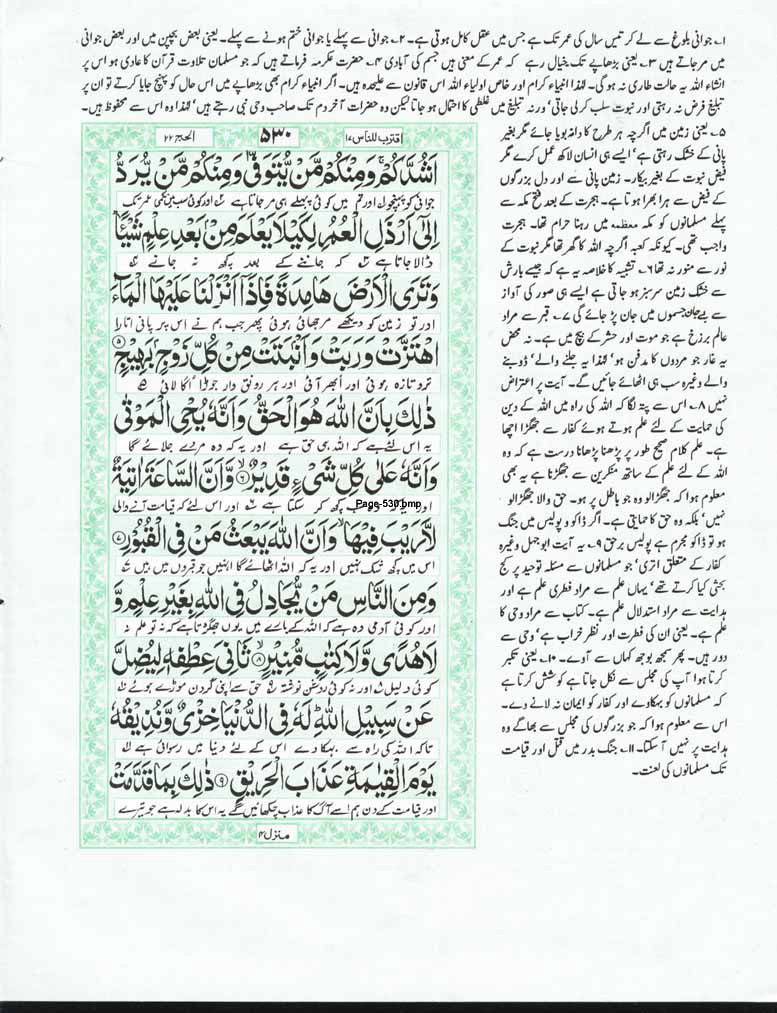 ۱۔ جوانی بلوغ سے لے کر تیس سال کی عمر تک ہے جس میں عقل کامل ہوتی ہے۔ ۲۔ جوانی سے پہلے یا جوانی ختم ہونے سے پہلے۔ یعنی بعض بچپن میں اور بعض جوانی
میں مر جاتے ہیں ۳۔ یعنی بڑھاپے تک خیال رہے کہ عمر کے معنی ہیں جسم کی آبادی ۴۔ حضرت عکرمہ فرماتے ہیں کہ جو مسلمان تلاوت قرآن کا عادی ہو اس پر
انشاء اللہ یہ حالت طاری نہ ہو گی۔ لہٰذا انبیاء کرام اور خاص اولیاء اللہ اس قانون سے علیحدہ ہیں۔ اگر انبیاء کرام بھی بڑھاپے میں اس حال کو پہنچ جایا کرتے تو ان پر
تبلیغ فرض نہ رہتی اور نبوت سلب کر لی جاتی‘ ورنہ تبلیغ میں غلطی کا احتمال ہو جاتا لیکن وہ حضرات آخر دم تک صاحب وحی نبی رہتے ہیں‘ لہٰذا وہ اس سے محفوظ ہیں۔
اقترب للناس ۱۷
۵۳۰
الحج ۲۲
اَشُدَّكُمْ ۚ وَمِنْكُمْ مَّنْ يُّتَوَفّٰى وَمِنْكُمْ مَّنْ يُّرَدُّ
جوانی کو پہنچو اور تم میں کوئی پہلے ہی مر جاتا ہے اور کوئی سب میں نکمی عمر تک
اِلٰٓى اَرْذَلِ الْعُمُرِ لِكَيْلَا يَعْلَمَ مِنْۢ بَعْدِ عِلْمٍ شَيْـًٔا
ڈالا جاتا ہے کہ جاننے کے بعد کچھ نہ جانے
وَتَرَى الْاَرْضَ هَامِدَةً فَاِذَآ اَنْزَلْنَا عَلَيْهَا الْمَآءَ
اور تو زمین کو دیکھے مرجھائی ہوئی پھر جب ہم نے اس پر پانی اتارا
اهْتَزَّتْ وَرَبَتْ وَاَنْۢبَتَتْ مِنْ كُلِّ زَوْجٍۭ بَهِيْجٍ ۵
تر و تازہ ہوئی اور ابھر آئی اور ہر رونق دار جوڑا اگا لائی
ذٰلِكَ بِاَنَّ اللّٰهَ هُوَ الْحَقُّ وَاَنَّهٗ يُحْىِ الْمَوْتٰى
یہ اس لئے ہے کہ اللہ ہی حق ہے اور یہ کہ وہ مردے جلائے گا
وَاَنَّهٗ عَلٰى كُلِّ شَىْءٍ قَدِيْرٌ ۶ وَّاَنَّ السَّاعَةَ اٰتِيَةٌ
اور یہ کہ وہ سب کچھ کر سکتا ہے اور اس لئے کہ قیامت آنے والی
Page-530.bmp
لَّا رَيْبَ فِيْهَا ۙ وَاَنَّ اللّٰهَ يَبْعَثُ مَنْ فِى الْقُبُوْرِ ۷
اس میں کچھ شک نہیں اور یہ کہ اللہ اٹھائے گا انہیں جو قبروں میں ہیں
وَمِنَ النَّاسِ مَنْ يُّجَادِلُ فِى اللّٰهِ بِغَيْرِ عِلْمٍ وَّ
اور کوئی آدمی وہ ہے کہ اللہ کے بارے میں یوں جھگڑتا ہے کہ نہ تو علم نہ
لَا هُدًى وَّلَا كِتٰبٍ مُّنِيْرٍ ۸ ثَانِىَ عِطْفِهٖ لِيُضِلَّ
کوئی دلیل اور نہ کوئی روشن نوشتہ حق سے اپنی گردن موڑے ہوئے
عَنْ سَبِيْلِ اللّٰهِ ؕ لَهٗ فِى الدُّنْيَا خِزْىٌ وَّنُذِيْقُهٗ
تاکہ اللہ کی راہ سے بہکا دے اس کے لئے دنیا میں رسوائی ہے
يَوْمَ الْقِيٰمَةِ عَذَابَ الْحَرِيْقِ ۹ ذٰلِكَ بِمَا قَدَّمَتْ
اور قیامت کے دن ہم اسے آگ کا عذاب چکھائیں گے یہ اس کا بدلہ ہے جو تیرے
منزل ۴
۵۔ یعنی زمین میں اگرچہ ہر طرح کا دانہ بویا جائے مگر بغیر
پانی کے خشک رہتی ہے‘ ایسے ہی انسان لاکھ عمل کرے مگر
فیض نبوت کے بغیر بیکار۔ زمین پانی سے اور دل بزرگوں
کے فیض سے ہرا بھرا ہوتا ہے۔ ہجرت کے بعد فتح مکہ سے
پہلے مسلمانوں کو مکہ معظمہ میں رہنا حرام تھا۔ ہجرت
واجب تھی۔ کیونکہ کعبہ اگرچہ اللہ کا گھر تھا مگر نبوت کے
نور سے منور نہ تھا ۶۔ تشبیہ کا خلاصہ یہ ہے کہ جیسے بارش
سے خشک زمین سرسبز ہو جاتی ہے ایسے ہی صور کی آواز
سے بے جان جسموں میں جان پڑ جائے گی ۷۔ قبر سے مراد
عالم برزخ ہے جو موت اور حشر کے بیچ میں ہے۔ نہ محض
یہ غار جو مردوں کا مدفن ہو‘ لہٰذا یہ جلنے والے‘ ڈوبنے
والے وغیرہ سب ہی اٹھائے جائیں گے۔ آیت پر اعتراض
نہیں ۸۔ اس سے پتہ لگا کہ اللہ کی راہ میں اللہ کے دین
کی حمایت کے لئے علم ہوتے ہوئے کفار سے جھگڑا اچھا
ہے۔ علم کلام صحیح طور پر پڑھنا پڑھانا درست ہے کہ وہ
اللہ کے لئے علم کے ساتھ منکرین سے جھگڑنا ہے یہ بھی
معلوم ہوا کہ جھگڑالو وہ جو باطل پر ہو۔ حق والا جھگڑالو
نہیں‘ بلکہ وہ حق کا حمایتی ہے۔ اگر ڈاکو و پولیس میں جنگ
ہو تو ڈاکو مجرم ہے پولیس برحق ۹۔ یہ آیت ابو جہل وغیرہ
کفار کے متعلق اتری‘ جو مسلمانوں سے مسئلہ توحید پر کج
بحثی کیا کرتے تھے‘ یہاں علم سے مراد فطری علم ہے اور
ہدایت سے مراد استدلال علم ہے۔ کتاب سے مراد وحی کا
علم ہے۔ یعنی ان کی فطرت اور نظر خراب ہے‘ وحی سے
دور ہیں۔ پھر سمجھ بوجھ کہاں سے آوے۔ ۱۰۔ یعنی تکبر
کرتا ہوا آپ کی مجلس سے نکل جاتا ہے کوشش کرتا ہے
کہ مسلمانوں کو بہکاوے اور کفار کو ایمان نہ لانے دے۔
اس سے معلوم ہوا کہ جو بزرگوں کی مجلس سے بھاگے وہ
ہدایت پر نہیں آ سکتا۔ ۱۱۔ جنگ بدر میں قتل اور قیامت
تک مسلمانوں کی لعنت۔